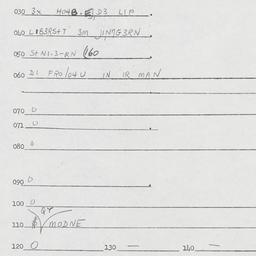 030 3x HO4B. D3 LIP
040 LIB3RS+T 3M JIN7G3RN
050 S+N1-3-RN 1/60
060 21 FRO/04U IN IR MAN
070 0
071 0
080 0
090 0
100 0
GY
110 MODNE
120 0 130 — 140 —